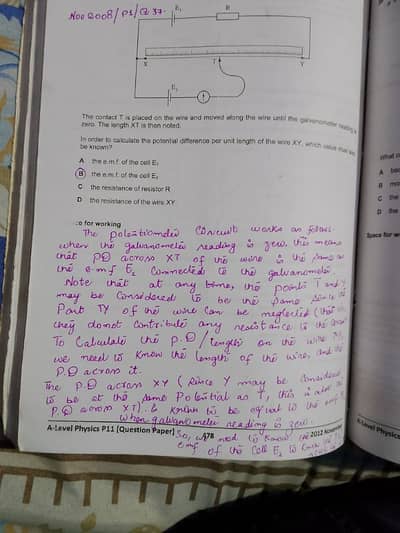 Nov 2008/P1/Q37.
E₁
R
X
T
Y
E₂
The contact T is placed on the wire and moved along the wire until the galvanometer reading is
zero. The length XT is then noted.
In order to calculate the potential difference per unit length of the wire XY, which value must also
be known?
A the e.m.f. of the cell E₁
B the e.m.f. of the cell E₂
C the resistance of resistor R
D the resistance of the wire XY
for working
The potentiometer circuit works as follows.
when the galvanometer reading is zero, this means
that PD across XT of the wire is the same as
the e.m.f E₂ connected to the galvanometer.
Note that at any time, the points T and Y
may be considered to be the same since the
Part TY of the wire can be neglected (that is,
they do not contribute any resistance to the
To calculate the P.D / length on the wire
we need to know the length of the wire, and the
P.D across it.
The P.D across XY (since Y may be considered
to be at the same potential as T, this is also the
P.D across XT). is known to be equal to the emf
when galvanometer reading is zero.
A-Level Physics P11 (Question Paper)
478
2012 November
So, we need to know the
emf of the cell E₂ to know the
A-Level Physics
Space for
What
A
B
C the
D the